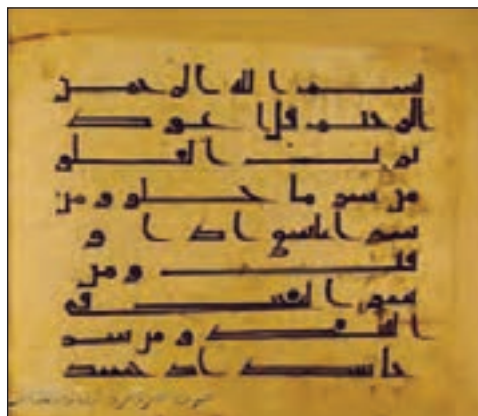 بسم الله الرحمن
الرحيم قل اعوذ
برب الفلق
من شر ما خلق ومن
شر غاسق اذا و
قب ومن
شر النفثت في
العقد ومن شر
حاسد اذا حسد